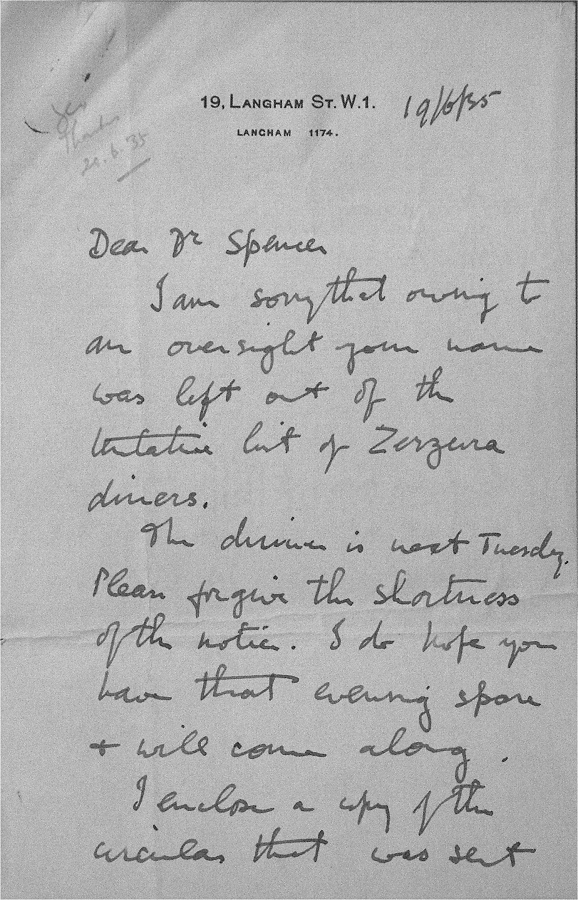 19, LANGHAM ST. W.1.
19/6/35
LANGHAM 1174.
Thanks
20.6.35
Dear Dr Spencer
I am sorry that owing to
an oversight your name
was left out of the
tentative list of Zerzura
diners.
The dinner is next Tuesday.
Please forgive the shortness
of the notice. I do hope you
have that evening spare
+ will come along.
I enclose a copy of the
circular that was sent